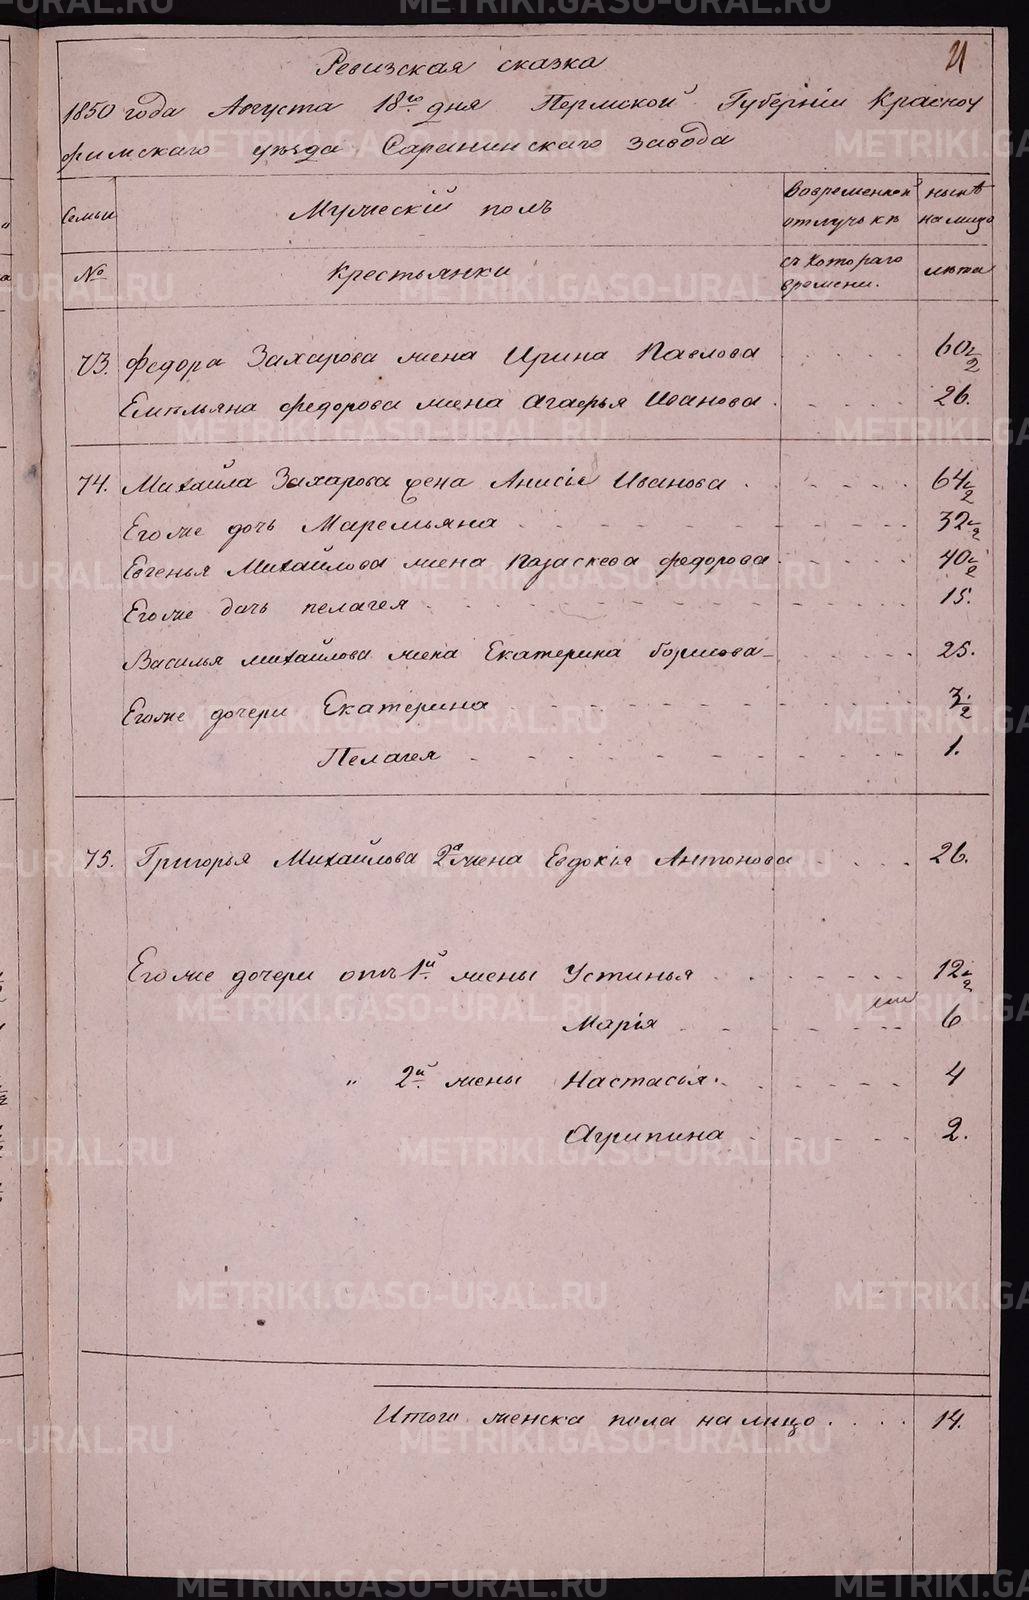 21
Ревизская сказка
1850 года Августа 18го дня Пермской Губернiи Красноу
фимскаго уѣзда Саранинскаго завода
Семьи
Мужескiй полъ
Вовременной
отлучькѣ
нынѣ
налицо
№
Крестьянки
съ котораго
времени.
лѣта
73. Федора Захарова жена Ирина Павлова 60 1/2
Емельяна федорова жена Агафья Иванова 26.
74. Михайла Захарова жена Анисiя Иванова 64 1/2
Егоже дочь Маремьяна 32 1/2
Евгенья Михайлова жена Параскева федорова 40 1/2
Егоже дочь пелагея 15.
Василья михайлова жена Екатерина борисова 25.
Егоже дочери Екатерина 3 1/2
Пелагея 1.
75. Григорья Михайлова 2я жена Евдокiя Антонова 26.
Егоже дочери отъ 1й жены Устинья 12 1/2
Марiя 6
" 2й жены Настасья 4
Агрипина 2.
Итого женска пола налицо 14.
METRIKI.GASO-URAL.RU